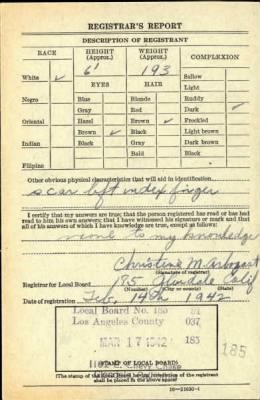 REGISTRAR'S REPORT
DESCRIPTION OF REGISTRANT
RACE HEIGHT (Approx.) WEIGHT (Approx.) COMPLEXION
6' 193
White ✓ Sallow
EYES HAIR Light
Negro Blue Blonde Ruddy
Gray Red Dark ✓
Oriental Hazel Brown ✓ Freckled
Brown ✓ Black Light brown
Indian Black Gray Dark brown
Bald Black
Filipino
Other obvious physical characteristics that will aid in identification
scar left index finger
I certify that my answers are true; that the person registered has read or has had
read to him his own answers; that I have witnessed his signature or mark and that
all of his answers of which I have knowledge are true, except as follows:
none to my knowledge
Christine M. Arbogast
(Signature of registrar)
Registrar for Local Board 185 Glendale Calif
(Number) (City or county) (State)
Date of registration Feb. 14th 1942
Local Board No. 185 21
Los Angeles County 037
MAR 17 1942 185
185
(STAMP OF LOCAL BOARD)
E. Chevy Chase
(The stamp of the Local Board having jurisdiction of the registrant
shall be placed in the above space)
16—21630-1